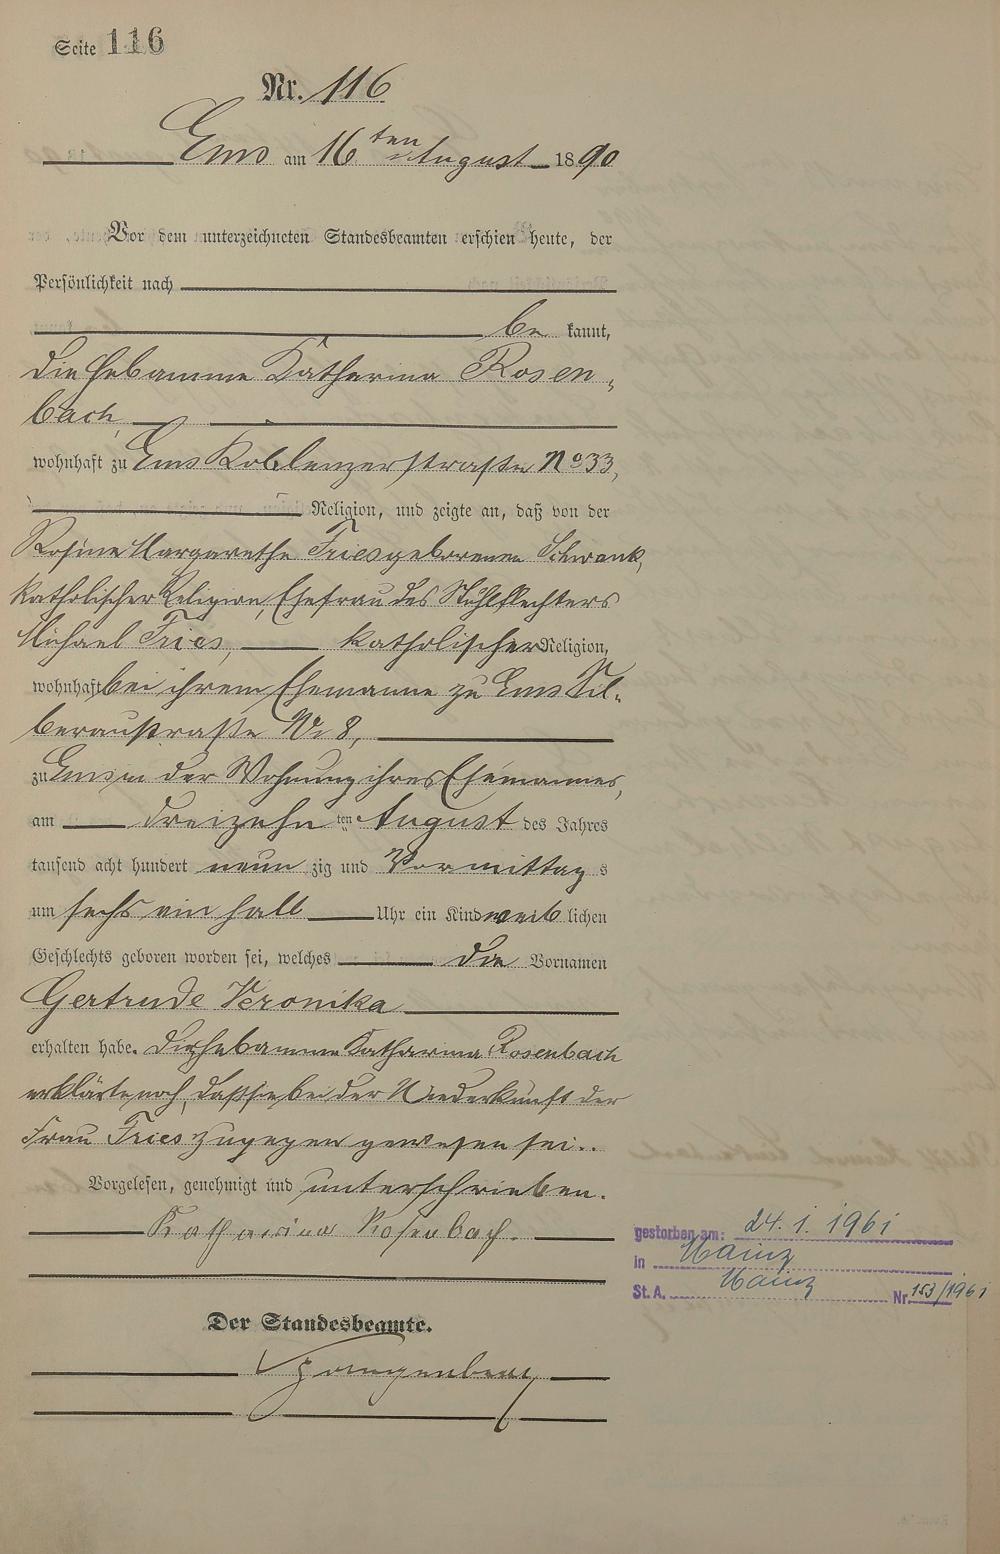 Seite 116
Nr. 116
Ems am 16ten August 1890
Vor dem unterzeichneten Standesbeamten erschien heute, der
Persönlichkeit nach
be kannt,
die Hebamme Katharina Rosen-
bach,
wohnhaft zu Ems Koblenzerstraße No 33,
Religion, und zeigte an, daß von der
Rosine Margarethe Fries geborenen Schwenk,
katholischer Religion, Ehefrau des Stuhlflechters
Michael Fries, katholischer Religion,
wohnhaft bei ihrem Ehemanne zu Ems Sil-
beraustraße No 8,
zu Ems in der Wohnung ihres Ehemannes,
am dreizehn ten August des Jahres
tausend acht hundert neun zig und Vormittag s
um sechs ein halb Uhr ein Kind weib lichen
Geschlechts geboren worden sei, welches die Vornamen
Gertrude Veronika
erhalten habe. Die Hebamme Katharina Rosenbach
erklärte noch, daß sie bei der Niederkunft der
Frau Fries zugegen gewesen sei.
Vorgelesen, genehmigt und unterschrieben.
Katharina Rosenbach.
gestorben am: 24. 1. 1961
in Mainz
St. A. Mainz Nr. 153/1961
Der Standesbeamte.
Spangenberg